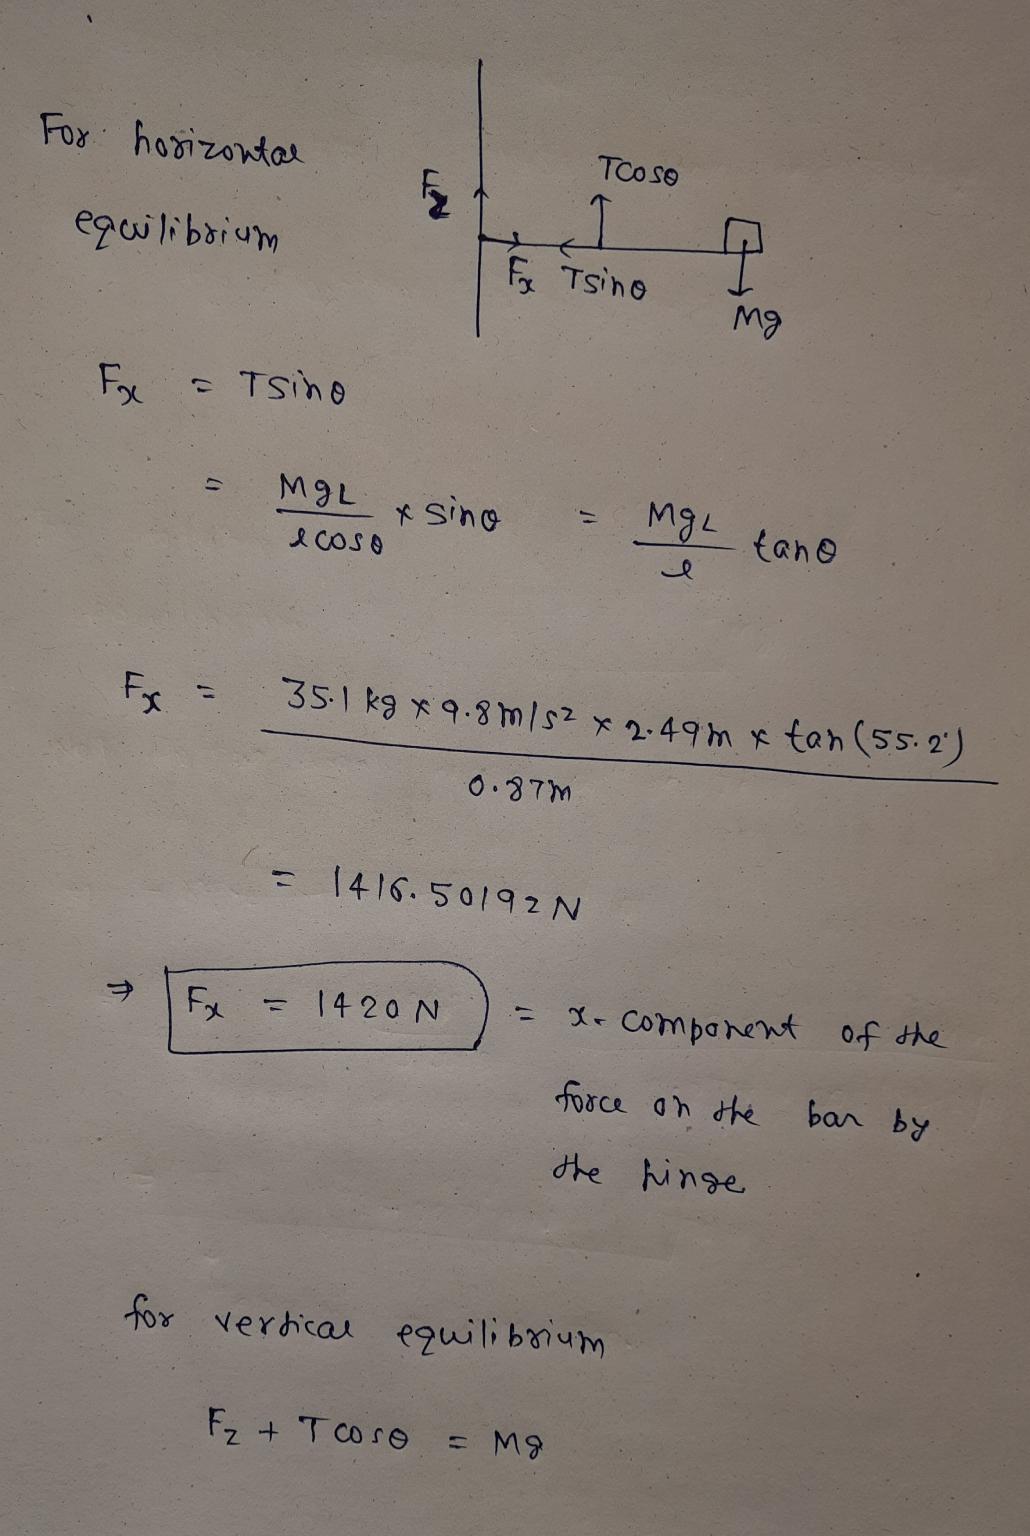 For horizontal
equilibrium
Fz
Tcosθ
Fx Tsinθ
Mg
Fx = Tsinθ
= MgL / ℓcosθ × sinθ = MgL / ℓ tanθ
Fx = 35.1 kg × 9.8 m/s² × 2.49m × tan(55.2°)
0.87m
= 1416.50192 N
⇒ Fx = 1420 N = x-component of the
force on the bar by
the hinge
for vertical equilibrium
Fz + Tcosθ = Mg